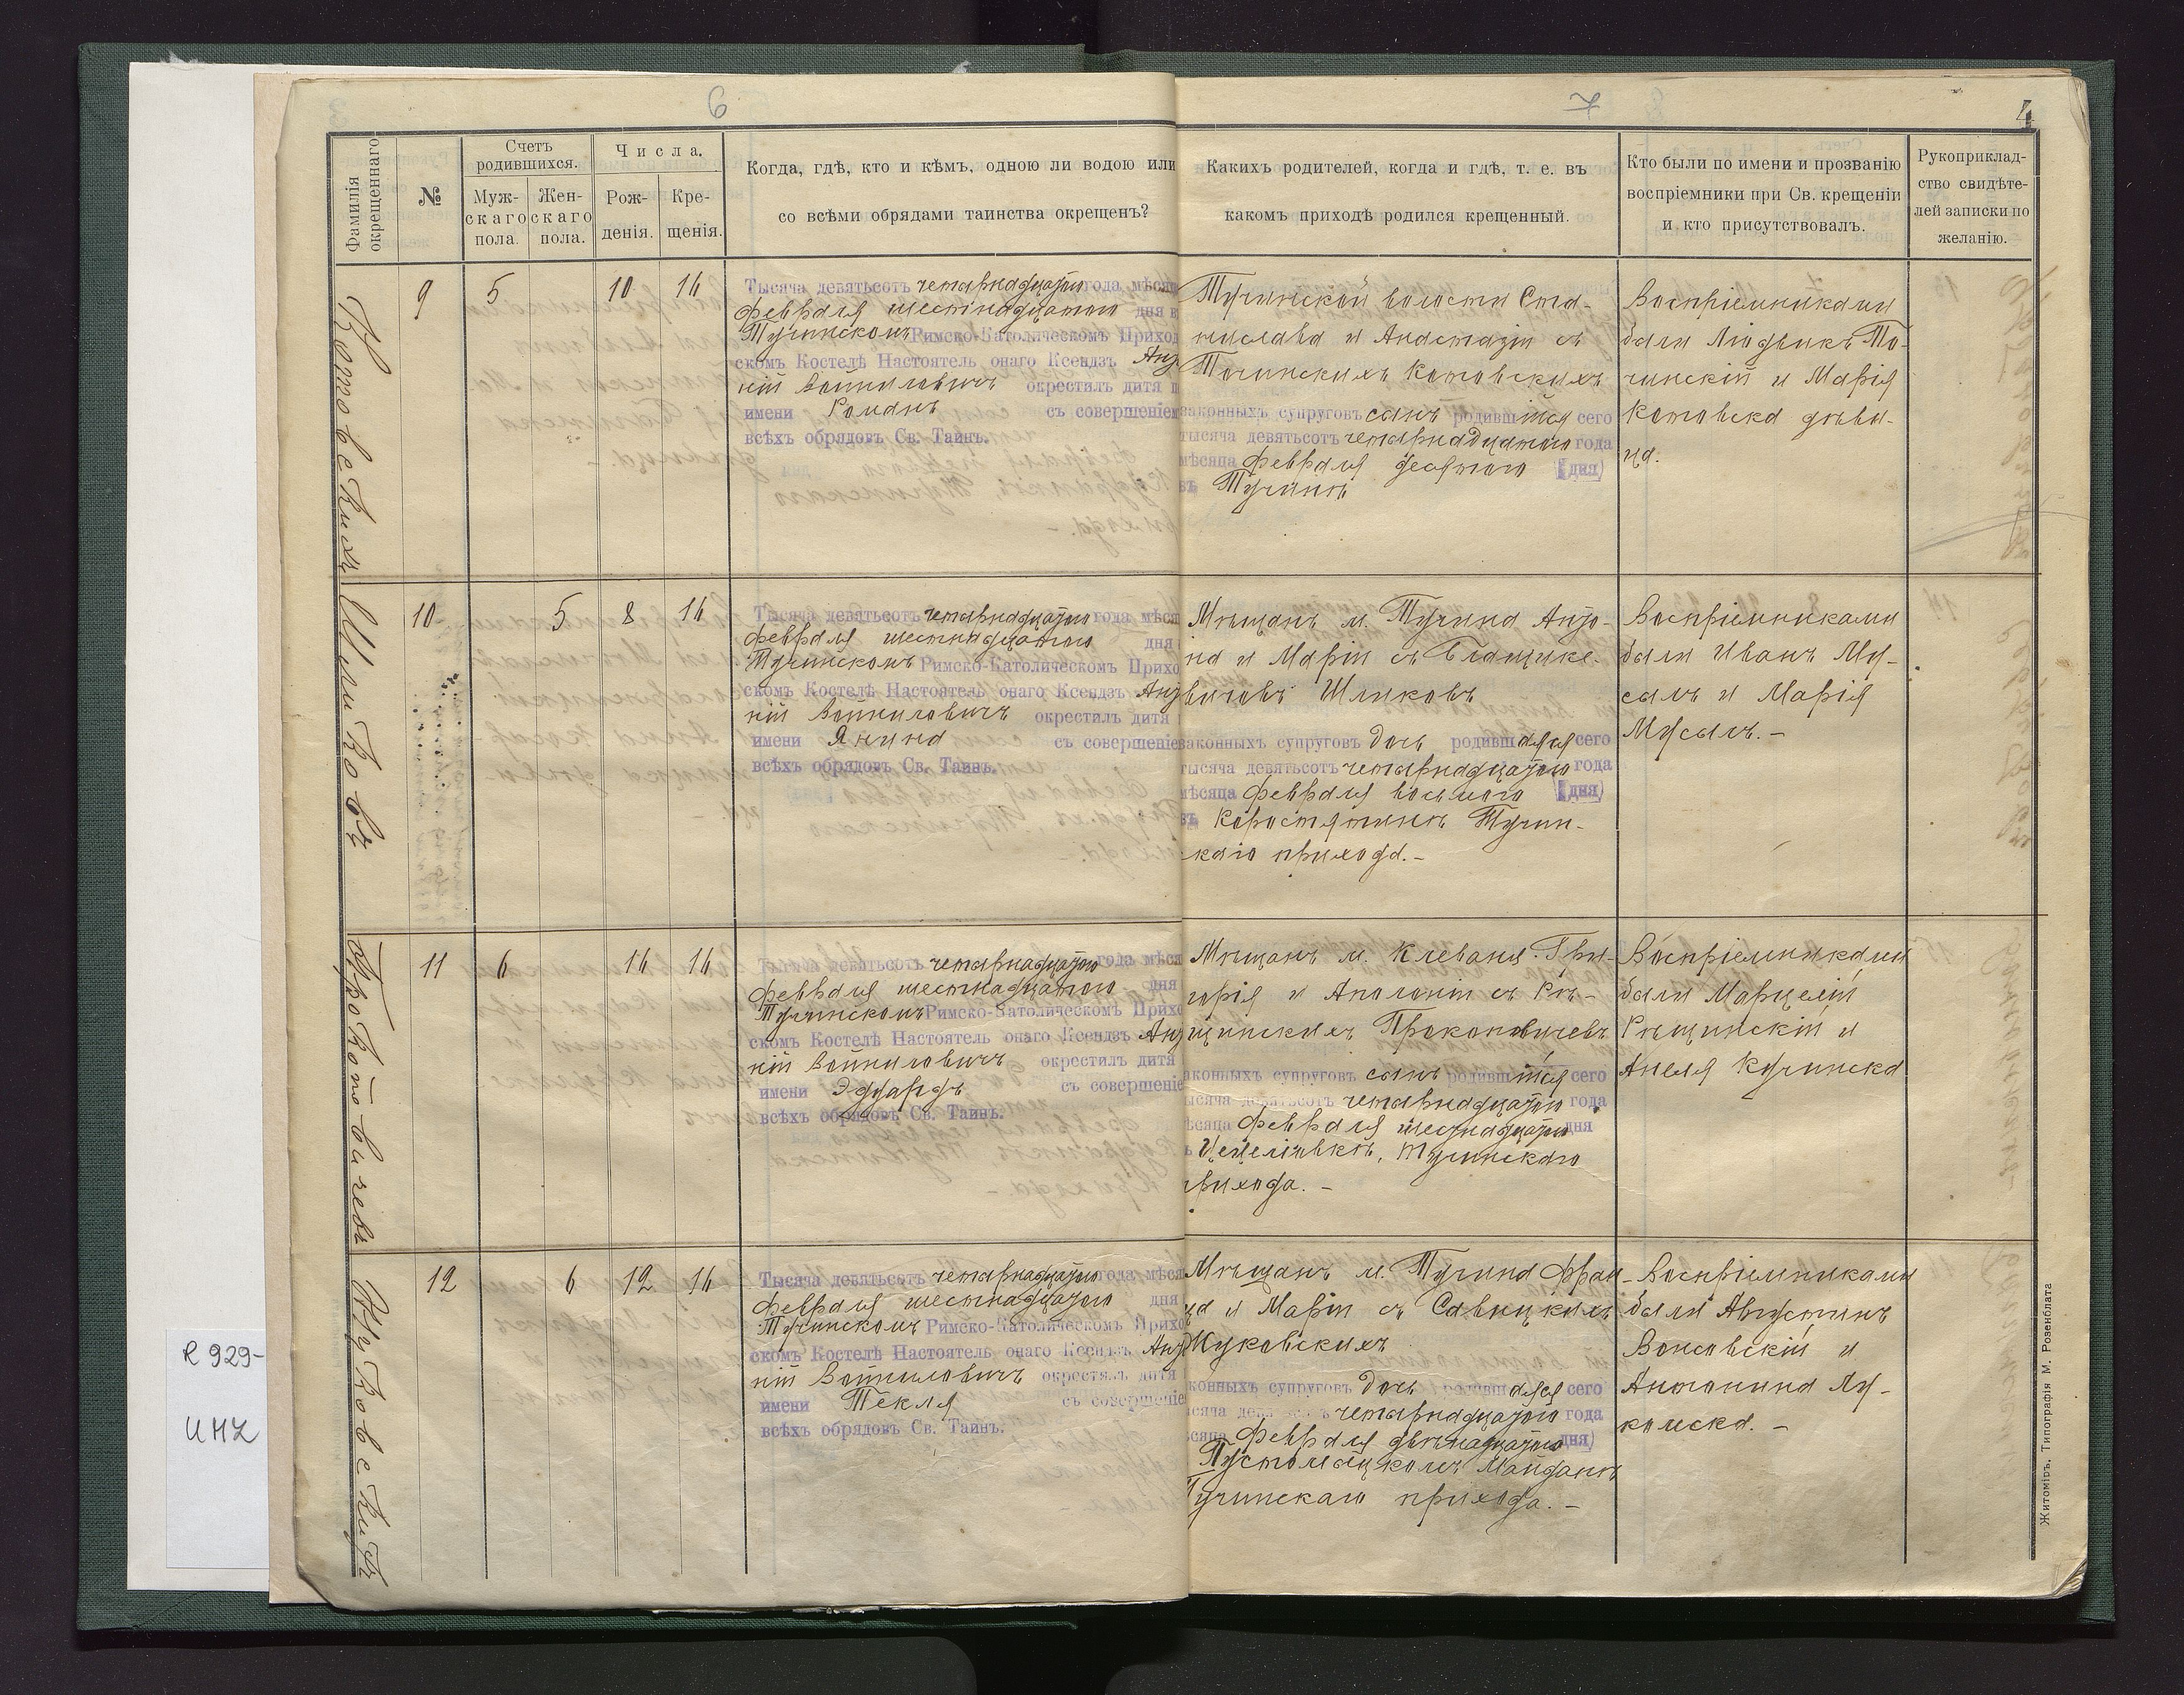 6
7
4
Фамилія окрещеннаго
№
Счетъ родившихся.
Муж-
скаго
пола.
Жен-
скаго
пола.
Числа.
Рож-
денія.
Кре-
щенія.
Когда, гдѣ, кто и кѣмъ, одною ли водою или
со всѣми обрядами таинства окрещенъ?
Какихъ родителей, когда и гдѣ, т. е. въ
какомъ приходѣ родился крещенный.
Кто были по имени и прозванію
воспріемники при Св. крещеніи
и кто присутствовалъ.
Рукоприклад-
ство свидѣте-
лей записки по
желанію.
Котовскихъ
9 5 10 16
Тысяча девятьсотъ четырнадцатаго года мѣся
февраля шестнадцатаго дня в
Тучинскомъ Римско-Католическомъ Приход
скомъ Костелѣ Настоятель онаго Ксендзъ
ній Войниловичъ окрестилъ дитя п
имени Романъ съ совершеніем
всѣхъ обрядовъ Св. Таинъ.
Тучинской волости Ста-
нислава и Анастазіи съ
Точинскихъ Котовскихъ
законныхъ супруговъ сынъ родившійся сего
тысяча девятьсотъ четырнадцатаго года
мѣсяца февраля десятаго (дня)
въ Тучинѣ
Воспріемниками
были Людвикъ То-
чинскій и Марія
Котовска дѣви-
ца.
Шликовъ
10 5 8 16
Тысяча девятьсотъ четырнадцатаго года мѣся
февраля шестнадцатаго дня
Тучинскомъ Римско-Католическомъ Прихо
скомъ Костелѣ Настоятель онаго Ксендзъ
ній Войниловичъ окрестилъ дитя
имени Янина съ совершеніе
всѣхъ обрядовъ Св. Таинъ.
Мѣщанъ м. Тучина Анто-
на и Маріи съ
вичовъ Шликовъ
законныхъ супруговъ дочь родившаяся сего
тысяча девятьсотъ четырнадцатаго года
мѣсяца февраля восьмого (дня)
въ Коростятинѣ Тучин-
скаго прихода.-
Воспріемниками
были Иванъ Му-
сылъ и Марія
Мусылъ.-
Прокоповичевъ
11 6 16 16
Тысяча девятьсотъ четырнадцатаго года мѣся
февраля шестнадцатаго дня
Тучинскомъ Римско-Католическомъ Прихо
скомъ Костелѣ Настоятель онаго Ксендзъ
ній Войниловичъ окрестилъ дитя
имени Эдуардъ съ совершеніе
всѣхъ обрядовъ Св. Таинъ.
Мѣщанъ м. Клеваня Гри-
горія и Аполоніи съ Рѣ-
щинскихъ Прокоповичевъ
законныхъ супруговъ сынъ родившійся сего
тысяча девятьсотъ четырнадцатаго года
мѣсяца февраля шестнадцатаго дня
Цецелiовкѣ, Тучинскаго
прихода.-
Воспріемниками
были Марцелій
Рѣщинскій и
Анеля Кучинска
Жуковскихъ
12 6 12 16
Тысяча девятьсотъ четырнадцатаго года мѣся
февраля шестнадцатаго дня
Тучинскомъ Римско-Католическомъ Прихо
скомъ Костелѣ Настоятель онаго Ксендзъ
ній Войниловичъ окрестилъ дитя
имени Текля съ совершеніе
всѣхъ обрядовъ Св. Таинъ.
Мѣщанъ м. Тучина Фран-
ца и Маріи съ Савицкихъ
Жуковскихъ
законныхъ супруговъ дочь родившаяся сего
тысяча девятьсотъ четырнадцатаго года
мѣсяца февраля двѣнадцатаго дня)
Пустомыцкомъ Майданѣ
Тучинскаго прихода.-
Воспріемниками
были Августинъ
Вонсовскій и
Антонина Лу-
комска.-
Житоміръ, Типографія М. Розенблата
R 929-
UMZ